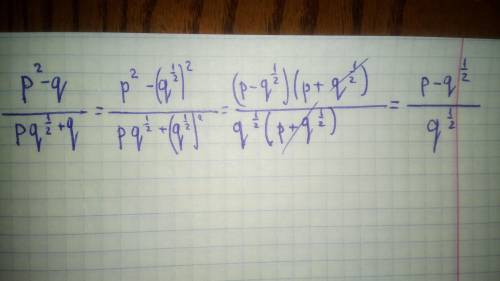 (p² - q)/(pq^(1/2) + q) = (p² - (q^(1/2))²)/(pq^(1/2) + (q^(1/2))²) = ((p - q^(1/2))(p + q^(1/2)))/(q^(1/2)(p + q^(1/2))) = (p - q^(1/2))/(q^(1/2))